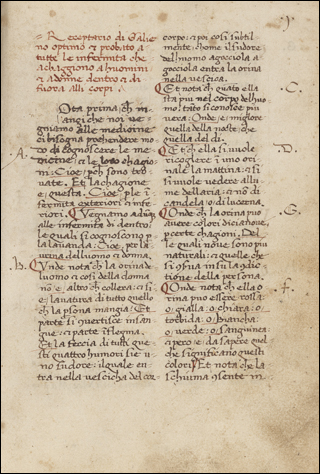 Receptario di Galie
no optimo & probato a
tutte le infermita che
achaggiono a huomini
& a donne dentro & di
fuora alli corpi.
Ota prima ch in
anzi che noi ve
gniamo alle medicine
ci bisogna prehendere mo
do di cognoscere le me
dicine & le loro chagio
ni: Cioe: peh sono tro
uate: Et la chagione
e: questa: Cioe: ple i
fermita exteriori & infe
riori. Vegniamo
alle infermita di dentro
le quali si cognoscono p
la lauanda: Cioe, per la
urina delluomo & donna.
Onde nota ch la orina de
luomo & cosi della donna
none, altro ch collera: & si
e, lauatura di tutto quello
ch la psona mangia: Et
parte si quertisce in san
gue: & parte i flegma.
Et la feccia di tutti que
sti quattro humori sie u
no sudore: il quale en
tra nella vescicha del cor
corpo: & poi cosi subtil
mente: chome il sudore
delluomo agocciola a
gocciola entra la orina
nella vescica.
Et nota ch quato ella
sta piu nel corpo delhuo
mo tanto si conosce piu
vera: Onde e, migliore
quella della notte: che
quella del di.
Et ch ella si vuole
ricogliere in uno ori
nale la mattina: & si
si vuole vedere allu
me dellaria: & no di
candela o di lucerna.
Onde ch la orina puo
auere colori diciannoue,
p certe chagioni, Del
le quali noue sono piu
naturali: & quelle che
si osia insu la
tione della persona.
Onde nota ch ella o
rina puo essere rossa:
o, gialla: o chiara: o
torbida: o, biancha:
o, verde: o, sanguinea
& pero e, da sapere quel
che significano questi
colori. Et nota che la
schiuma consente in
A.
B.
C.
D.
G.
f.